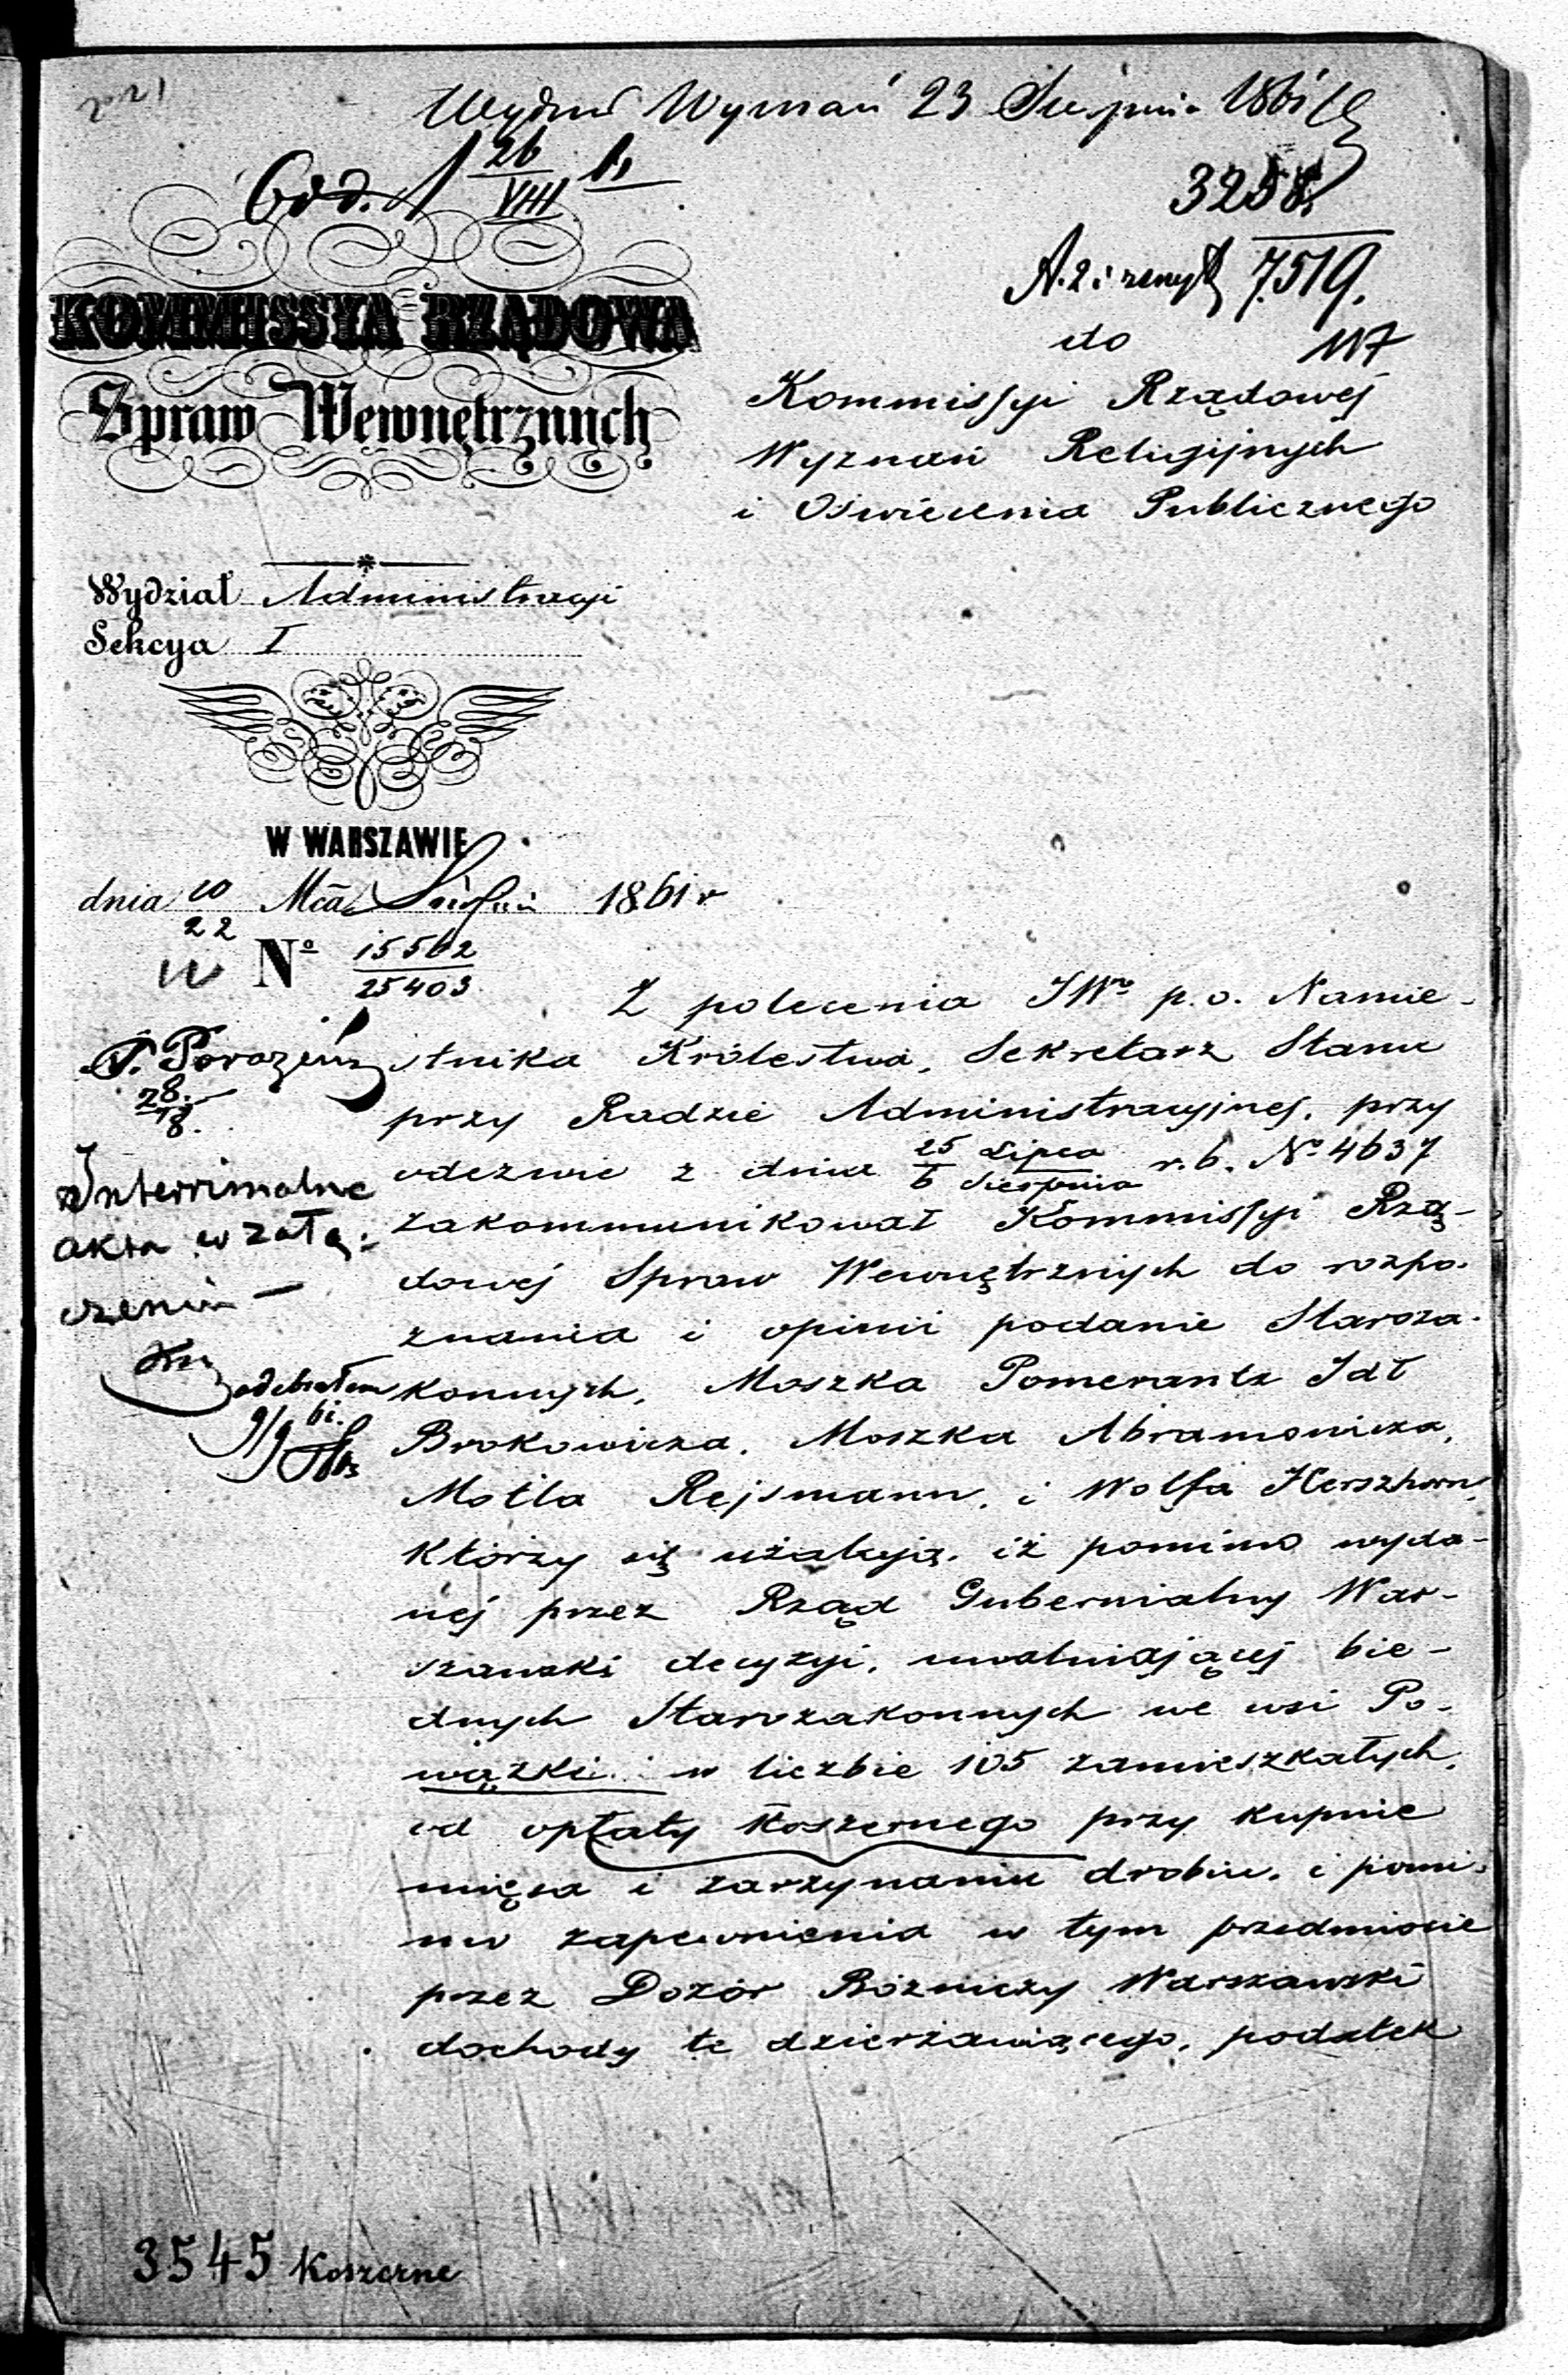 Wydział Wyznań 23 Sierpnia 1861
Odd. 1 26/VIII 61
3258.
7519.
do
117
KOMMISSYA RZĄDOWA
Spraw Wewnętrznych
Kommissyi Rządowej
Wyznań Religijnych
i Oświecenia Publicznego
Wydział Administracyi
Sekcya I
W WARSZAWIE
dnia 10/22 Mca Sierpnia 1861 r
No 15562/25403
Z polecenia JWo p. o. Namie-
stnika Królestwa, Sekretarz Stanu
przy Radzie Administracyjnej, przy
odezwie z dnia 25 Lipca/6 Sierpnia r. b. No 4637
zakommunikował Kommissyi Rzą-
dowej Spraw Wewnętrznych do rozpo-
znania i opinii podanie Staroza-
konnych, Moszka Pomerantz Idł
Brokowicza, Moszka Abramowicza,
Motla Rejsmann, i Wolfa Herszhorn,
którzy się użalają, iż pomimo wyda-
nej przez Rząd Gubernialny War-
szawski decyzyi, uwalniającej bie-
dnych Starozakonnych we wsi Po-
wązki w liczbie 105 zamieszkałych,
od opłaty koszernego przy kupnie
mięsa i zarzynaniu drobiu, i pomi-
mo zapewnienia w tym przedmiocie
przez Dozór Bóżniczy Warszawski
dochody te dzierżawiącego, podatek
28/8.
Interrimalne
akta w załą-
czeniu —
odebrałem
9/9 61.
3545 Koszerne